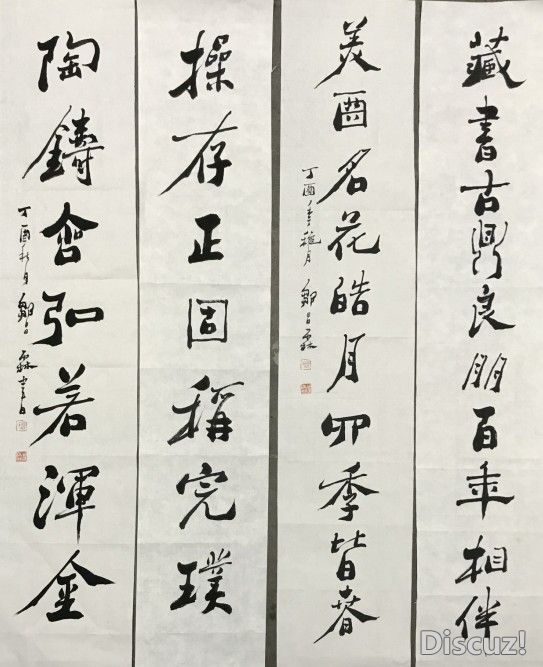 藏書古鼎良朋百年相伴
美酉名花皓月四季皆春
丁酉年月 鄒昌霖
操存正固稱完璞
陶鑄含弘若渾金
丁酉秋月 鄒昌霖
Discuz!